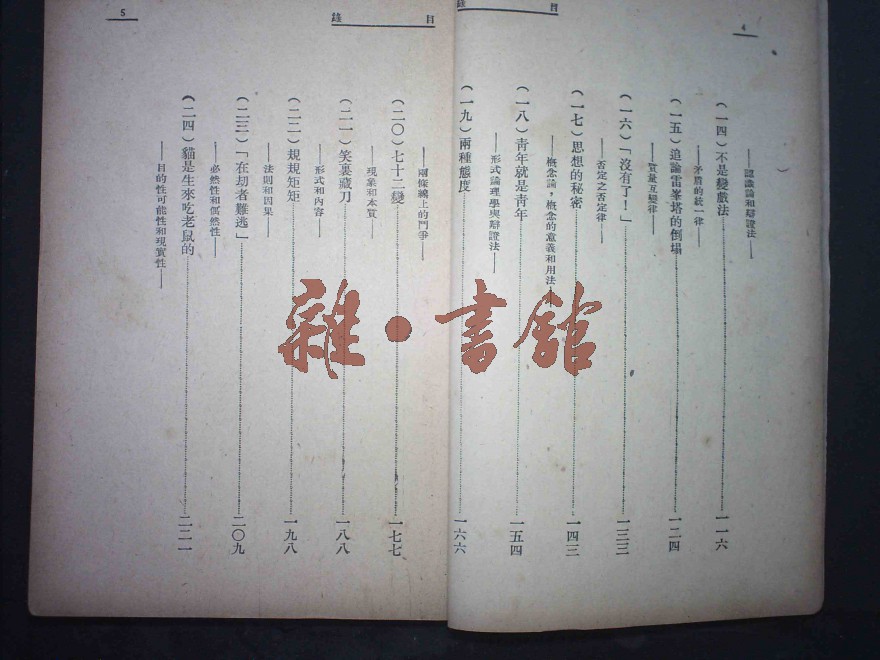 4
目 錄
——認識論和辯證法——
(一四)不是變戲法……一一六
——矛盾的統一律——
(一五)追論雷峯塔的倒塌……一二四
——質量互變律——
(一六)「沒有了!」……一三三
——否定之否定律——
(一七)思想的秘密……一四三
——概念論,概念的意義和用法——
(一八)青年就是青年……一五四
——形式論理學與辯證法——
(一九)兩種態度……一六六
目 錄
5
——兩條綫上的鬥爭——
(二〇)七十二變……一七七
——現象和本質——
(二一)笑裏藏刀……一八八
——形式和內容——
(二二)規規矩矩……一九八
——法則和因果——
(二三)「在劫者難逃」……二〇九
——必然性和偶然性——
(二四)貓是生來吃老鼠的……二二一
——目的性可能性和現實性——
雜·書舘